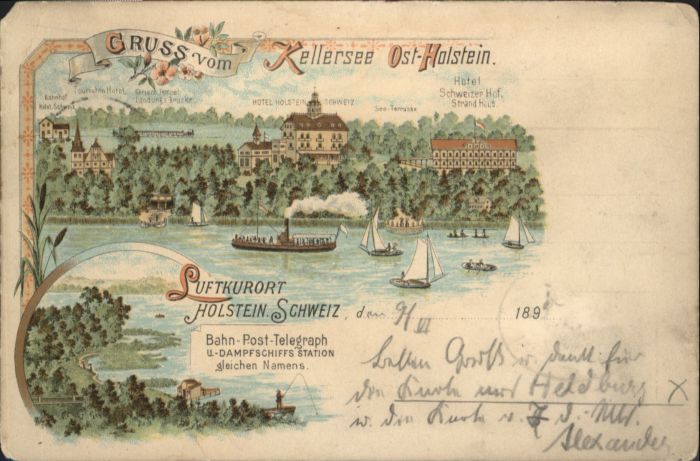 GRUSS vom
Kellersee Ost-Holstein.
Bahnhof
Holst. Schweiz
Touristen Hotel.
Landungs Brücke
HOTEL HOLSTEIN. SCHWEIZ
See-Terrasse
Hotel
Schweizer Hof.
Strand Haus.
LUFTKURORT
HOLSTEIN. SCHWEIZ, den 9/VI 189
Bahn-Post-Telegraph
U.-DAMPFSCHIFFS STATION
gleichen Namens.
Besten Gruß u. Dank für
die Karte aus Heldburg X
u. die Karte v.
Alexander